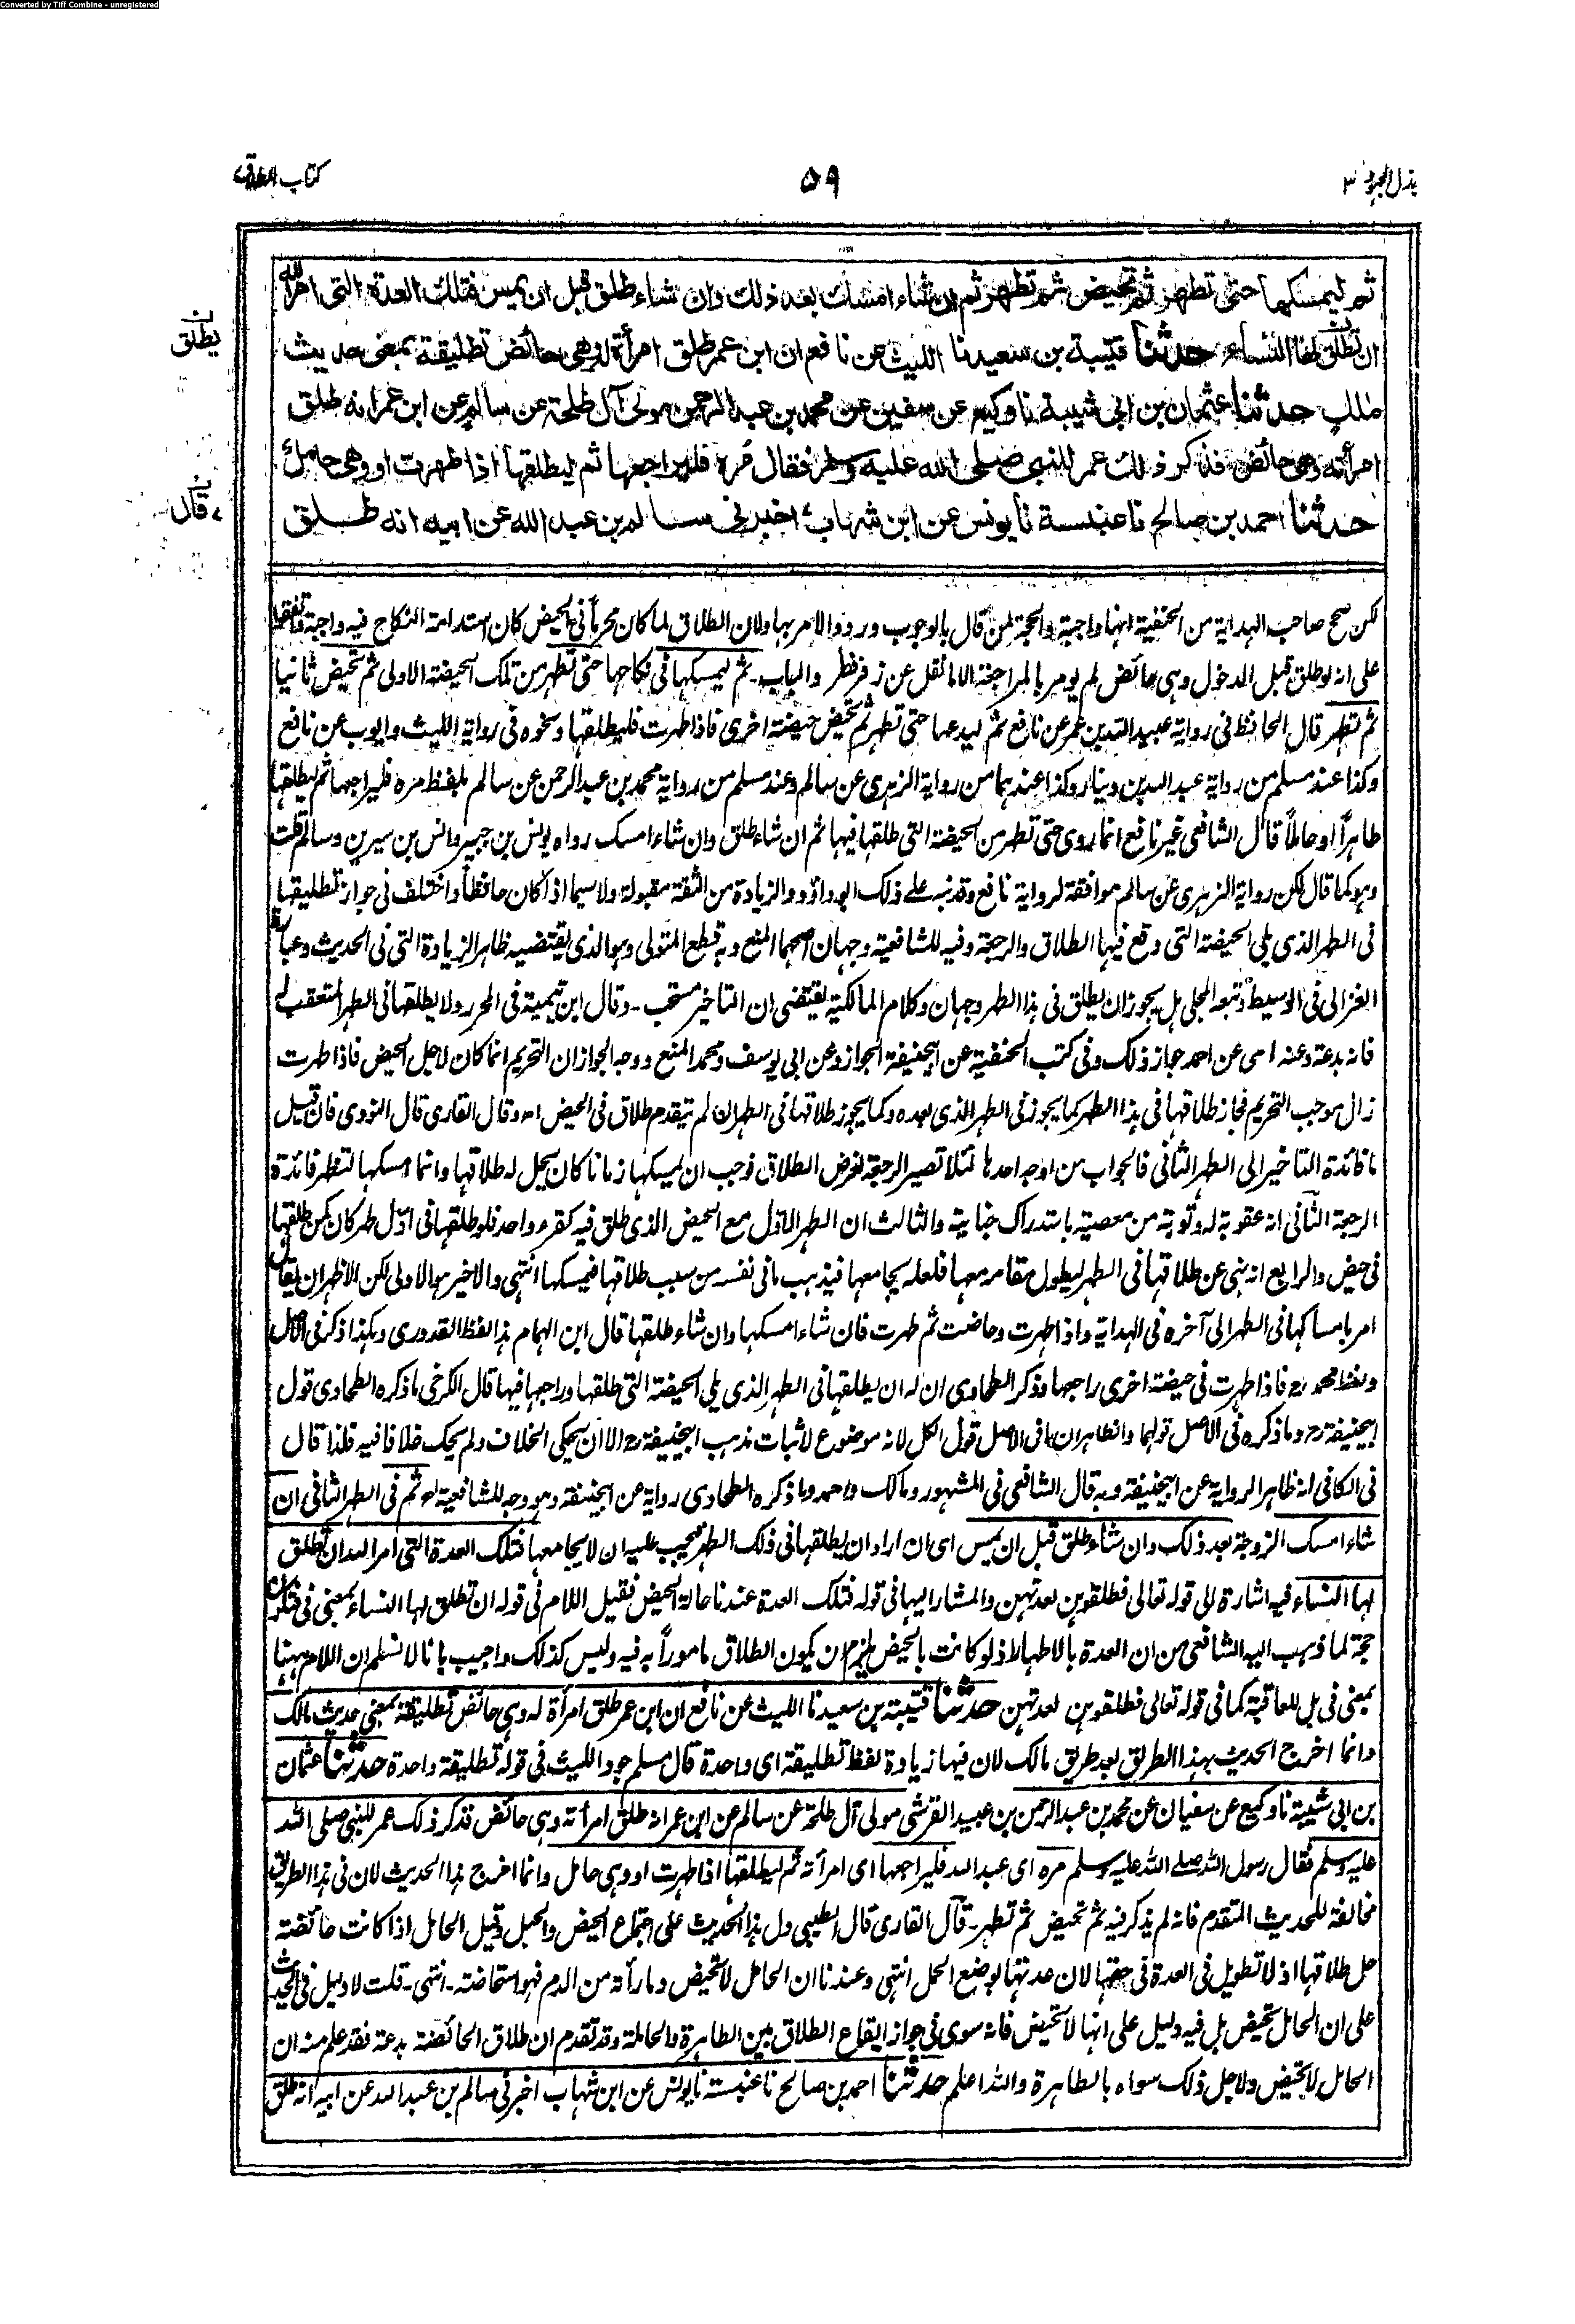 Converted by Tiff Combine - unregistered
بذل المجهود ٣
٥٩
كتاب الطلاق
ثم ليمسكها حتى تطهر ثم تحيض ثم تطهر ثم ان شاء امسك بعد ذلك وان شاء طلق قبل ان يمس فتلك العدة التى امر الله
ان تطلق لها النساء حدثنا قتيبة بن سعيد نا الليث عن نافع ان ابن عمر طلق امرأة له وهى حائض تطليقة بمعنى حديث
ملك حدثنا عثمان بن ابى شيبة نا وكيع عن سفين عن محمد بن عبد الرحمن مولى آل طلحة عن سالم عن ابن عمر انه طلق
امرأته وهى حائض فذكر ذلك عمر للنبى صلى الله عليه وسلم فقال مره فليراجعها ثم ليطلقها اذا طهرت او وهى حامل
حدثنا احمد بن صالح نا عنبسة نا يونس عن ابن شهاب اخبرنى سالم بن عبد الله عن ابيه انه طلق
ن
يطلق
ن
قال
لكن صحح صاحب الهداية من الحنفية انها واجبة والحجة لمن قال بالوجوب ورود الامر بها ولان الطلاق لما كان محرماً فى الحيض كان استدامة النكاح فيه واجبة واتفقوا
على انه لو طلق قبل الدخول وهى حائض لم يومر بالمراجعة الا ما نقل عن زفر فطرد الباب۔ ثم ليمسكها فى نكاحها حتى تطهر من تلك الحيضة الاولى ثم تحيض ثانيا
ثم تطهر قال الحافظ فى رواية عبيد الله بن عمر عن نافع ثم ليدعها حتى تطهر ثم تحيض حيضة اخرى فاذا طهرت فليطلقها ونحوه فى رواية الليث وايوب عن نافع
وكذا عند مسلم من رواية عبد الله بن دينار وكذا عندهما من رواية الزهرى عن سالم وعند مسلم من رواية محمد بن عبد الرحمن عن سالم بلفظ مره فليراجعها ثم ليطلقها
طاهراً او حاملاً قال الشافعى غير نافع انما روى حتى تطهر من الحيضة التى طلقها فيها ثم ان شاء طلق وان شاء امسك رواه يونس بن جبير وانس بن سيرين وسالم قلت
وهو كما قال لكن رواية الزهرى عن سالم موافقة لرواية نافع وقد نبه على ذلك ابو داؤد والزيادة من الثقة مقبولة ولا سيما اذا كان حافظاً واختلف فى جواز تطليقها
فى الطهر الذى يلى الحيضة التى وقع فيها الطلاق والرجعة وفيه للشافعية وجهان اصحهما المنع وبه قطع المتولى وهو الذى يقتضيه ظاهر الزيادة التى فى الحديث وعبارة
الغزالى فى الوسيط وتبعه المجلى هل يجوز ان يطلق فى هذا الطهر وجهان وكلام المالكية يقتضى ان التاخير مستحب۔ وقال ابن تيمية فى المحرر ولا يطلقها فى الطهر المتعقب له
فانه بدعة وعنه اى عن احمد جواز ذلك وفى كتب الحنفية عن ابيحنيفة الجواز وعن ابى يوسف ومحمد المنع ووجه الجواز ان التحريم انما كان لاجل الحيض فاذا طهرت
زال موجب التحريم فجاز طلاقها فى هذا الطهر كما يجوز فى الطهر الذى بعده وكما يجوز طلاقها فى الطهر ان لم يتقدم طلاق فى الحيض اھ وقال القارى قال النووى فان قيل
ما فائدة التاخير الى الطهر الثانى فالجواب من اوجه احدها لئلا تصير الرجعة لغرض الطلاق فوجب ان يمسكها زمانا كان يحل له طلاقها وانما امسكها لتظهر فائدة
الرجعة الثانى انه عقوبة له وتوبة من معصية باستدراك جناية والثالث ان الطهر الاول مع الحيض الذى طلق فيه كقرء واحد فلو طلقها فى اول طهر كان كمن طلقها
فى حيض والرابع انه نهى عن طلاقها فى الطهر ليطول مقامه معها فلعله يجامعها فيذهب ما فى نفسه من سبب طلاقها فيمسكها انتهى والاخير هو الاولى لكن الاظهر ان يقال
امر بامساكها فى الطهر الى آخره فى الهداية واذا طهرت وحاضت ثم طهرت فان شاء امسكها وان شاء طلقها قال ابن الهمام هذا لفظ القدورى وهكذا ذكر فى الاصل
ولفظ محمد رح فاذا طهرت فى حيضة اخرى راجعها وذكر الطحاوى ان له ان يطلقها فى الطهر الذى يلى الحيضة التى طلقها وراجعها فيها قال الكرخى ما ذكره الطحاوى قول
ابيحنيفة رح وما ذكره فى الاصل قولهما والظاهر ان ما فى الاصل قول الكل لانه موضوع لاثبات مذهب ابيحنيفة رح الا ان يحكى الخلاف ولم يحك خلافا فيه فلذا قال
فى الكافى انه ظاهر الرواية عن ابيحنيفة وبه قال الشافعى فى المشهور ومالك واحمد وما ذكره الطحاوى رواية عن ابيحنيفة وهو وجه للشافعية اھ ثم فى الطهر الثانى ان
شاء امسك الزوجة بعد ذلك وان شاء طلق قبل ان يمس اى ان اراد ان يطلقها فى ذلك الطهر فيجب عليه ان لا يجامعها فتلك العدة التى امر الله ان تطلق
لها النساء فيه اشارة الى قوله تعالى فطلقوهن لعدتهن والمشار اليها فى قوله فتلك العدة عندنا حالة الحيض فقيل اللام فى قوله ان تطلق لها النساء بمعنى فى فتكون
حجة لما ذهب اليه الشافعى من ان العدة بالاطهار اذ لو كانت بالحيض يلزم ان يكون الطلاق ماموراً به فيه وليس كذلك واجيب بانا لا نسلم ان اللام ههنا
بمعنى فى بل للعاقبة كما فى قوله تعالى فطلقوهن لعدتهن حدثنا قتيبة بن سعيد نا الليث عن نافع ان ابن عمر طلق امرأة له وهى حائض تطليقة بمعنى حديث مالك
وانما اخرج الحديث بهذا الطريق بعد طريق مالك لان فيها زيادة لفظ تطليقة اى واحدة قال مسلم جود الليث فى قوله تطليقة واحدة حدثنا عثمان
بن ابى شيبة نا وكيع عن سفيان عن محمد بن عبد الرحمن بن عبيد القرشى مولى آل طلحة عن سالم عن ابن عمر انه طلق امرأته وهى حائض فذكر ذلك عمر للنبى صلى الله
عليه وسلم فقال رسول الله صلى الله عليه وسلم مره اى عبد الله فليراجعها اى امرأته ثم ليطلقها اذا طهرت او وهى حامل وانما اخرج هذا الحديث لان فى هذا الطريق
مخالفة للحديث المتقدم فانه لم يذكر فيه ثم تحيض ثم تطهر۔ قال القارى قال الطيبى دل هذا الحديث على اجتماع الحيض والحبل وقيل الحامل اذا كانت حائضة
حل طلاقها اذ لا تطويل فى العدة فى حقها لان عدتها بوضع الحمل انتهى وعندنا ان الحامل لا تحيض وما رأته من الدم فهو استحاضة۔ انتهى۔ قلت لا دليل فى الحديث
على ان الحامل تحيض بل فيه دليل على انها لا تحيض فانه سوى فى جواز ايقاع الطلاق بين الطاهرة والحاملة وقد تقدم ان طلاق الحائضة بدعة فقد علم منه ان
الحامل لا تحيض ولاجل ذلك سواه بالطاهرة والله اعلم حدثنا احمد بن صالح نا عنبسة نا يونس عن ابن شهاب اخبرنى سالم بن عبد الله عن ابيه انه طلق